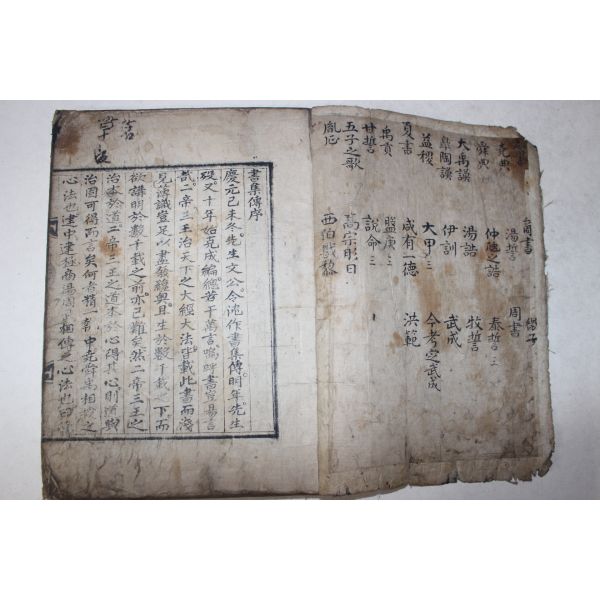 堯典
舜典
大禹謨
皐陶謨
益稷
夏書
禹貢
甘誓
五子之歌
胤征
商書
湯誓
仲虺之誥
湯誥
伊訓
大甲三
咸有一德
盤庚三
說命三
高宗肜日
西伯戡黎
微子
周書
泰誓三
牧誓
武成
今考定武成
洪範
書集傳序
慶元己未冬。先生文公。令沈作書集傳。明年。先生
歿。又十年。始克成編。總若干萬言。嗚呼。書豈易言
哉。二帝三王治天下之大經大法。皆載此書。而淺
見薄識。豈足以盡發蘊奧。且生於數千載之下。而
欲講明於數千載之前。亦已難矣。然二帝三王之
治。本於道。二帝三王之道。本於心。得其心。則道與
治。固可得而言矣。何者。精一執中。堯舜禹相授之
心法也。建中建極。商湯周武相傳之心法也。曰德